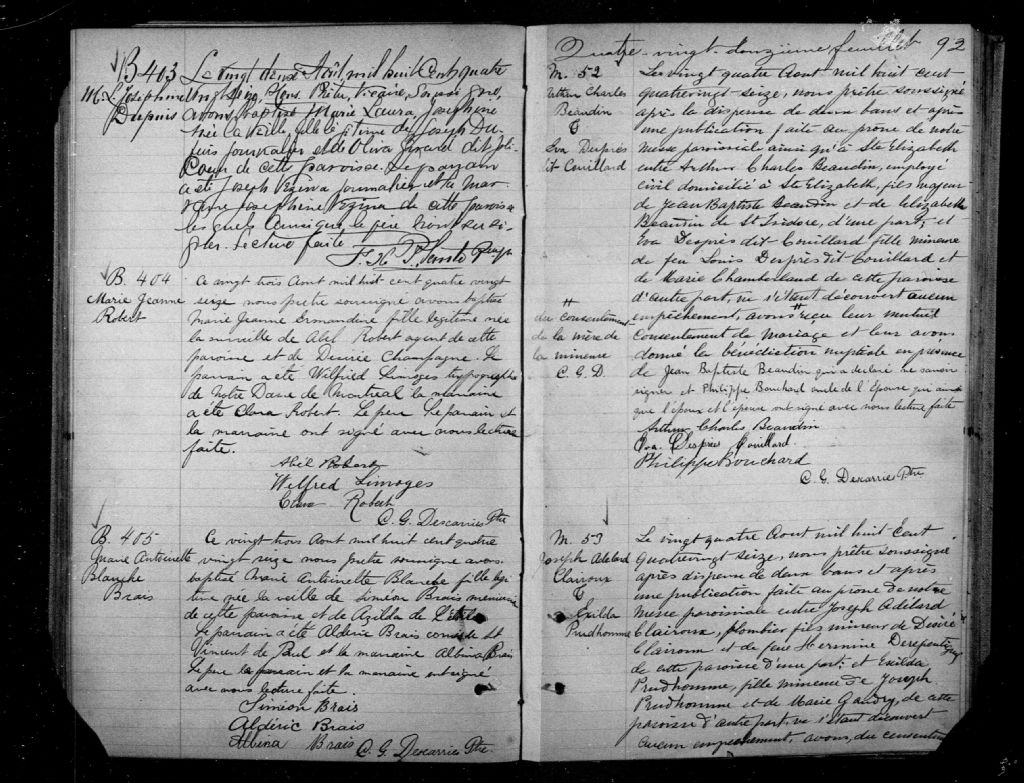 B 403
M. L. Josephine
Dupuis
Le vingt deux Août mil huit cent quatre
vingt seize, Nous, Prêtre, Vicaire, Soussigné,
avons baptisé Marie Laura Josephine
née la veille, fille légitime de Joseph Du-
puis journalier et de Oliva Girard dit Joli-
Coeur de cette paroisse. Le parrain
a été Joseph Vezina journalier et la mar
raine Josephine Vezina de cette paroisse
lesquels ainsi que le père n'ont su si-
gner. Lecture faite
B. 404
Marie Jeanne
Robert
Ce vingt trois Aout mil huit cent quatre vingt
seize nous pretre soussigné avons baptisé
Marie Jeanne Ermandine fille legitime née
la surveille de Abel Robert agent de cette
paroisse et de Desirée Champagne. Le
parrain a été Wilfred Limoges typographe
de Notre Dame de Montreal la marraine
a été Clara Robert. Le pere le parrain et
la marraine ont signé avec nous lecture
faite.
Abel Robert
Wilfred Limoges
Clara Robert
C. G. Descarries Ptre
B. 405
Marie Antoinette
Blanche
Brais
Ce vingt trois Aout mil huit cent quatre
vingt seize nous Pretre soussigné avons
baptisé Marie Antoinette Blanche fille legi
time née la veille de Siméon Brais menuisier
de cette paroisse et de Agilda de
Le parrain a été Aldéric Brais comté de St
Vincent de Paul et la marraine Albina Brais
Le pere le parrain et la marraine ont signé
avec nous lecture faite.
Siméon Brais
Aldéric Brais
Albina Brais C. G. Descarries Ptre
Quatre-vingt-douzième feuillet 92
M. 52
Arthur Charles
Beaudin
&
Eva Després
dit Couillard
Les vingt quatre Aout mil huit cent
quatrevingt-seize, nous prêtre soussigné
après la dispense de deux bans et après
une publication faite au prone de notre
messe paroissiale ainsi qu'à Ste Elizabeth
entre Arthur Charles Beaudin, employé
civil domicilié à Ste Elizabeth, fils majeur
de Jean Baptiste Beaudin et de Elizabeth
Beaudin de St Isidore, d'une part, et
Eva Després dit Couillard fille mineure
de feu Louis Després dit Couillard et
de Marie Chamberland de cette paroisse
d'autre part, ne s'étant découvert aucun
empêchement, avons # reçu leur mutuel
consentement de mariage et leur avons
donné la bénédiction nuptiale en présence
de Jean Baptiste Beaudin qui a déclaré ne savoir
signer et Philippe Bouchard oncle de l'épouse qui ainsi
que l'époux et l'épouse ont signé avec nous lecture faite
#
du consentement
de la mère de
la mineure
C. G. D.
Arthur Charles Beaudin
Eva Després Couillard
Philippe Bouchard
C. G. Descarries Ptre
M. 53
Joseph Adelard
Clairoux
&
Exilda
Prudhomme
Le vingt quatre Aout mil huit Cent
Quatrevingt seize, nous prêtre soussigné
après dispense de deux bans et après
une publication faite au prone de notre
messe paroissiale entre Joseph Adelard
Clairoux, plombier fils mineur de Desiré
Clairoux et de feue Hermine Derepentigny
de cette paroisse d'une part, et Exilda
Prudhomme, fille mineure de Joseph
Prudhomme et de Marie Gaudry, de cette
paroisse d'autre part, ne s'étant découvert
aucun empêchement, avons, du consentem